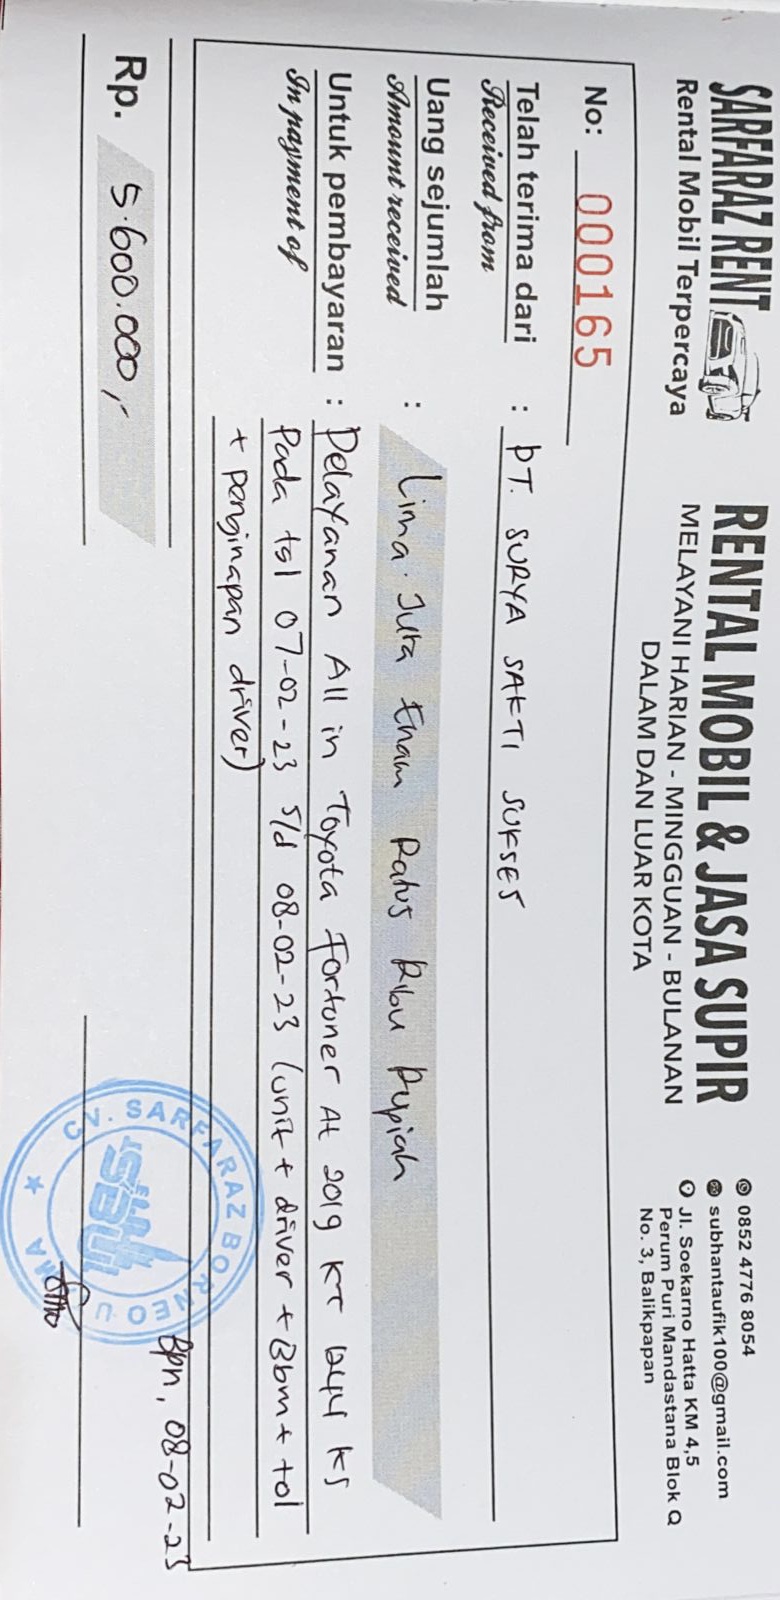 SARFARAZ RENT
Rental Mobil Terpercaya
RENTAL MOBIL & JASA SUPIR
MELAYANI HARIAN - MINGGUAN - BULANAN
DALAM DAN LUAR KOTA
0852 4776 8054
subhantaufik100@gmail.com
Jl. Soekarno Hatta KM 4,5
Perum Puri Mandastana Blok Q
No. 3, Balikpapan
No: 000165
Telah terima dari : PT. SURYA SAKTI SUKSES
Received from
Uang sejumlah : Lima Juta Enam Ratus Ribu Rupiah
Amount received
Untuk pembayaran : Pelayanan All in Toyota Fortuner At 2019 KT 1244 KS
In payment of
Pada tgl 07-02-23 s/d 08-02-23 (unit + driver + Bbm + tol
+ penginapan driver)
Rp. 5.600.000,-
Bpn, 08-02-23
CV. SARFARAZ BORNEO UTAMA